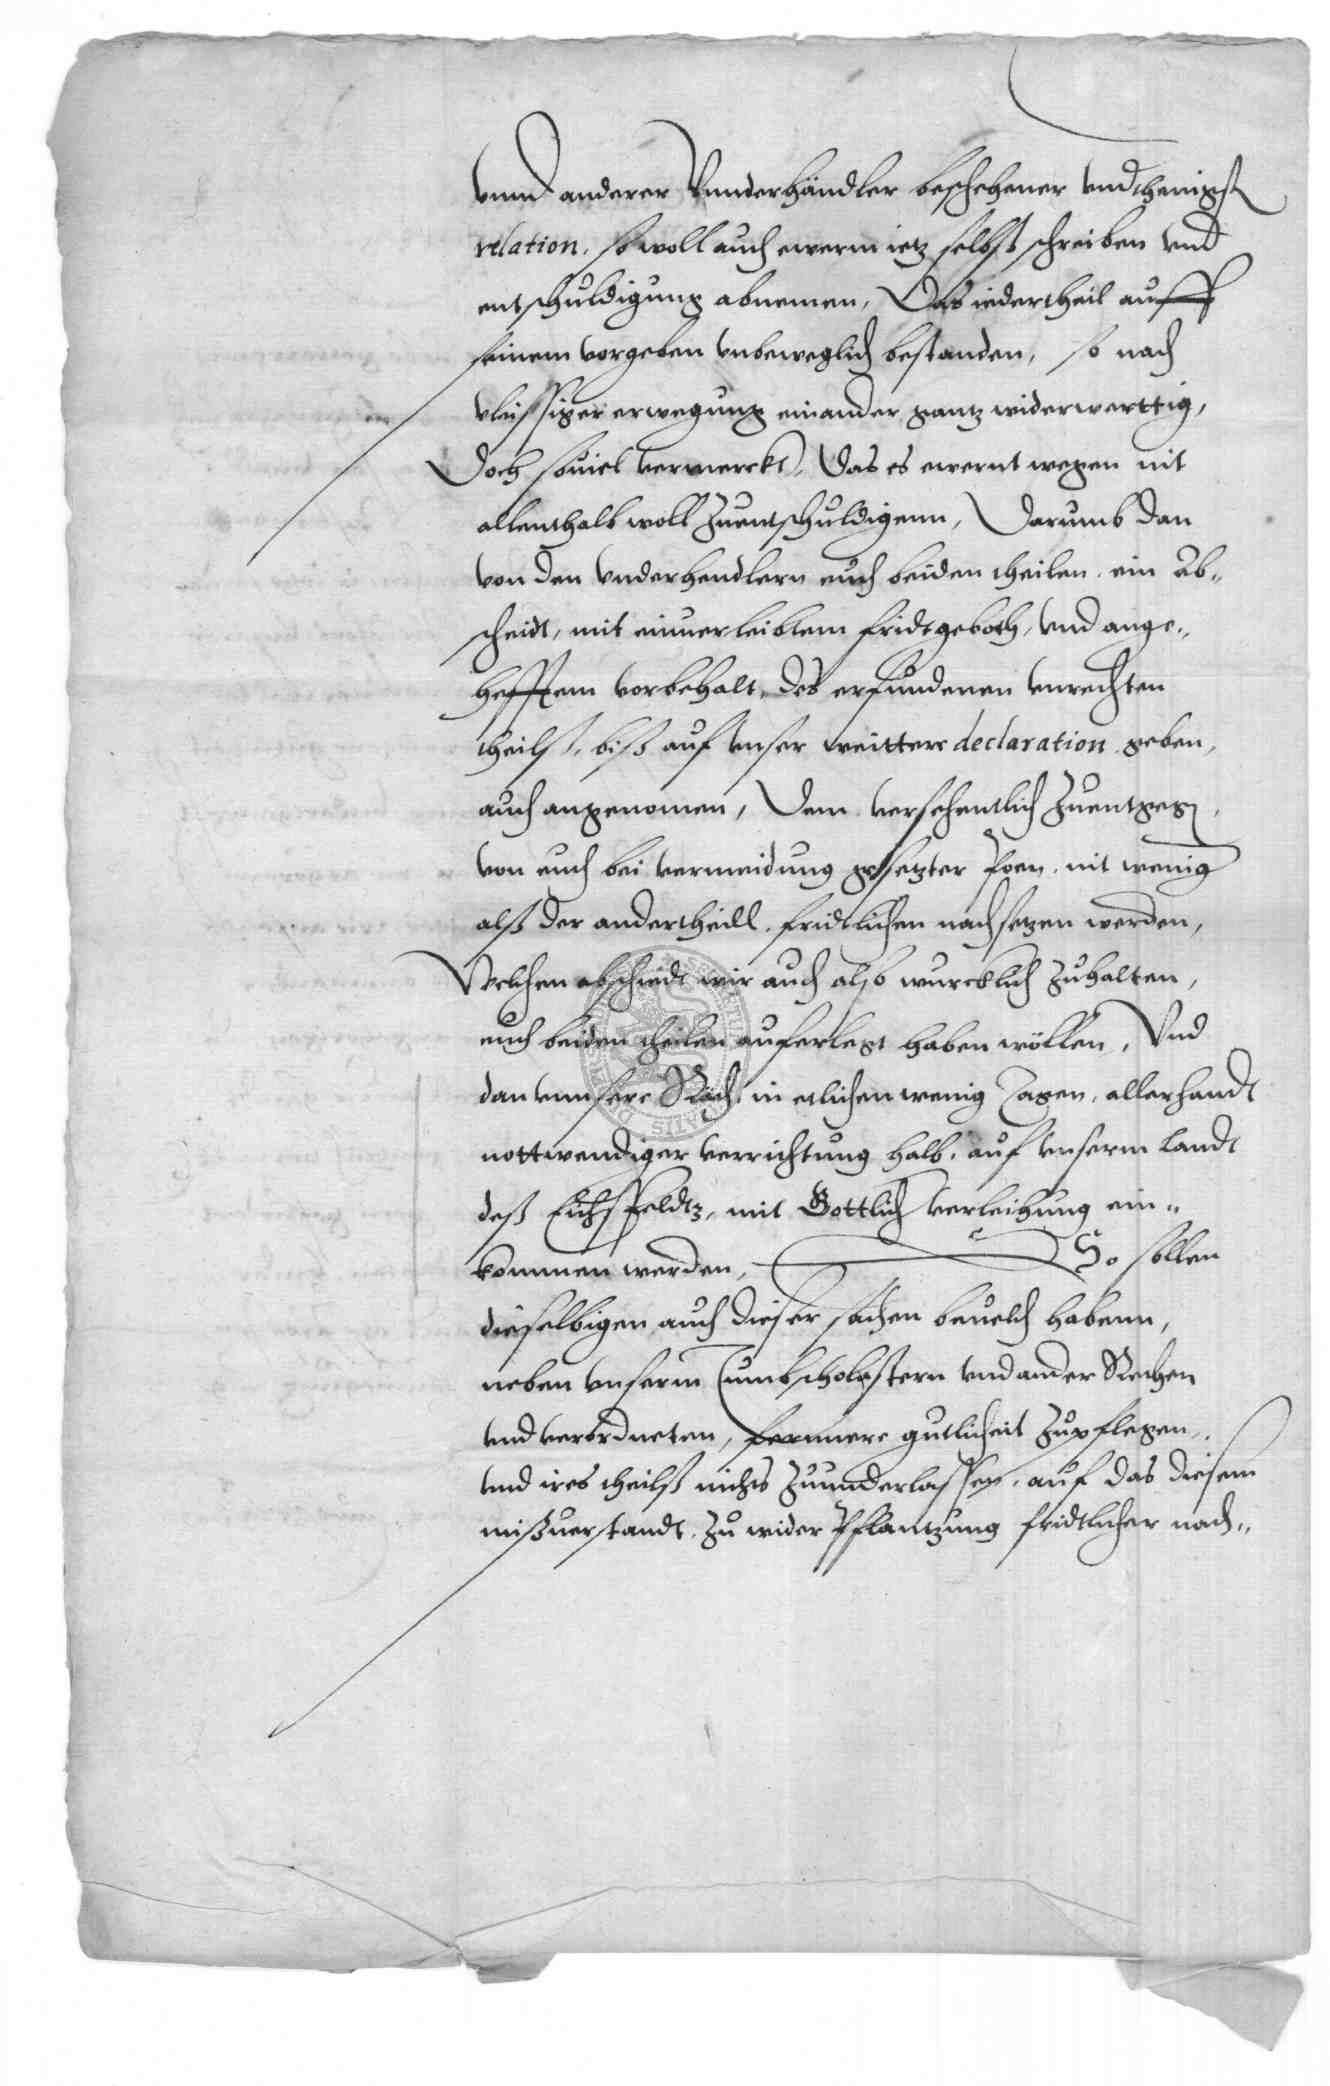 vnnd anderer Vnnderhändler beschehener vnd thenigst
relation, so woll auch ewerm ietz selbst schreiben vnd
entschuldigung abnemen, Das iedertheil auff
seinem vorgeben vnbeweglich bestanden, so nach
vleissiger erwegung einander gantz widerwerttig,
Doch souiel vermerckt, Das es ewernt wegen nit
allenthalb woll Zuentschuldigenn, Darumb dan
von den vnderhendlern euch beiden theilen ein Ab„
scheidt, mit einuerleibtem fridtgeboth, vnd ange„
hefftem vorbehalt, des erfundenen vnrechten
theilß, biß auf vnser weittere declaration geben,
auch angenomen, Dem versehentlich Zuentgegen,
von euch bei vermeidung gesetzter Poen, nit wenig
alß der andertheill, fridtlichen nachsetzen werden,
Welchen abschiedt wir auch also wurcklich Zuhalten,
euch beiden theilen auferlegt haben wöllen, Vnd
dan vnnsere Räth, in etlichen wenig Tagen, allerhandt
nottwendiger verrichtung halb, auf vnserm Landt
deß Eichsfeldtz, mit Gottlich verleihung ein„
kommen werden, So sollen
dieselbigen auch dieser sachen beuelch habenn,
neben vnserm Tumbscholastern vnd ander Rethen
vnd verordneten, fernnere gutlicheit Zupflegen,
vnd ires theilß nichts Zuunderlassen, auf das diesem
mißuerstandt, Zu wider Pflantzung fridtlicher nach„